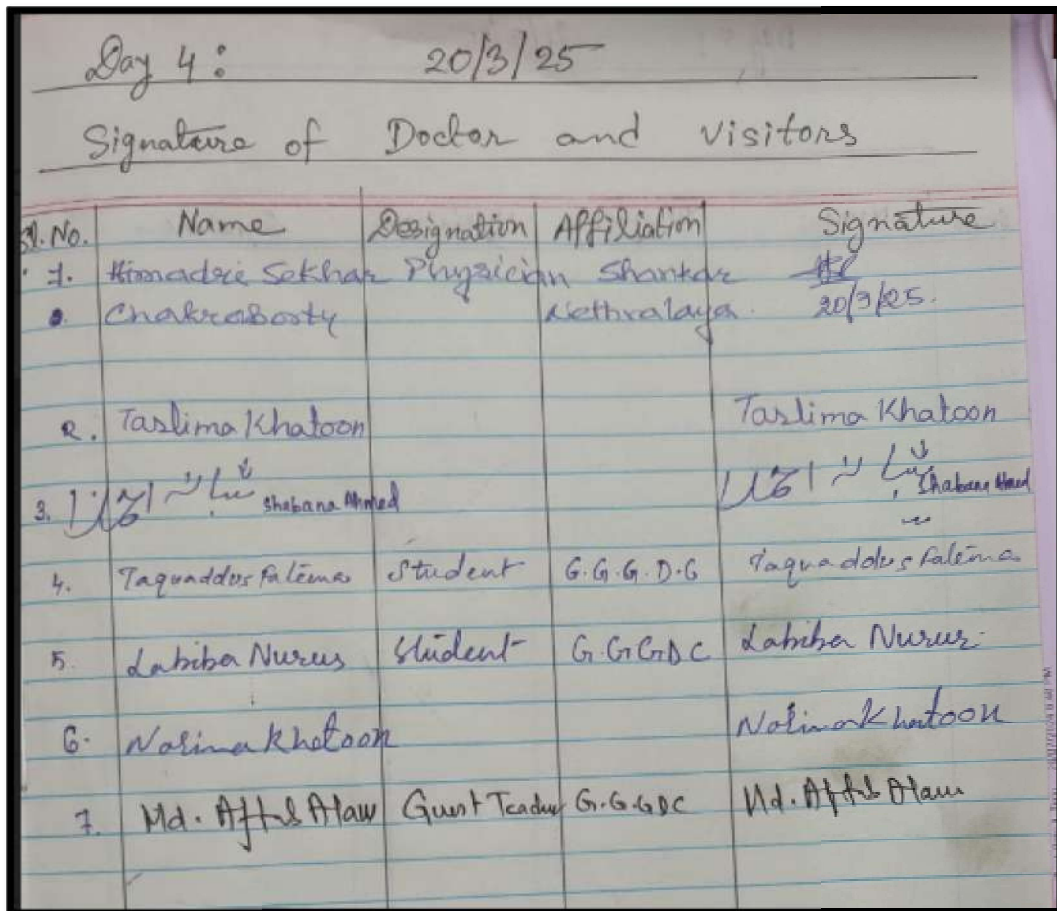 Day 4: 20/3/25
Signature of Doctor and visitors
Sl. No. Name Designation Affiliation Signature
1. Himadri Sekhar Physician Shankar
Chakraborty Nethralaya. 20/3/25.
2. Taslima Khatoon Taslima Khatoon
3. شبانہ احمد Shabana Ahmed شبانہ احمد Shabana Ahmed
4. Taquaddus Fatema Student G.G.G.D.C Taquaddus Fatema
5. Labiba Nurus Student G.G.G.D.C Labiba Nurus
6. Nasima Khatoon Nasima Khatoon
7. Md. Aftab Alam Guest Teacher G.G.G.D.C Md. Aftab Alam